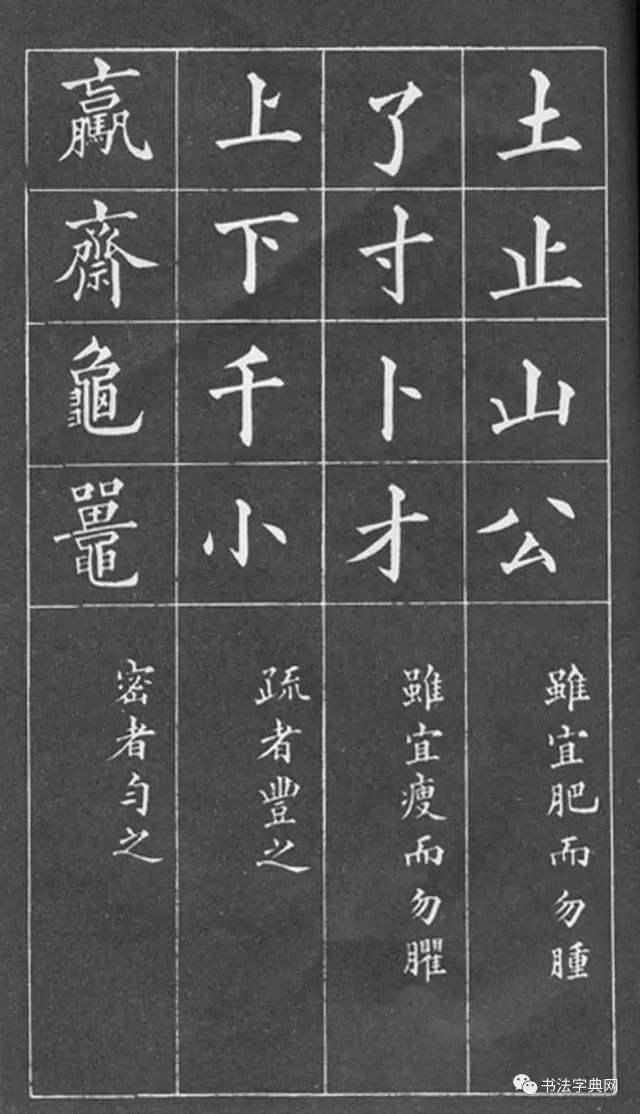 土止山公
雖宜肥而勿腫
了寸卜才
雖宜瘦而勿臞
上下千小
疏者豐之
驘齋龜鼉
密者勻之
书法字典网